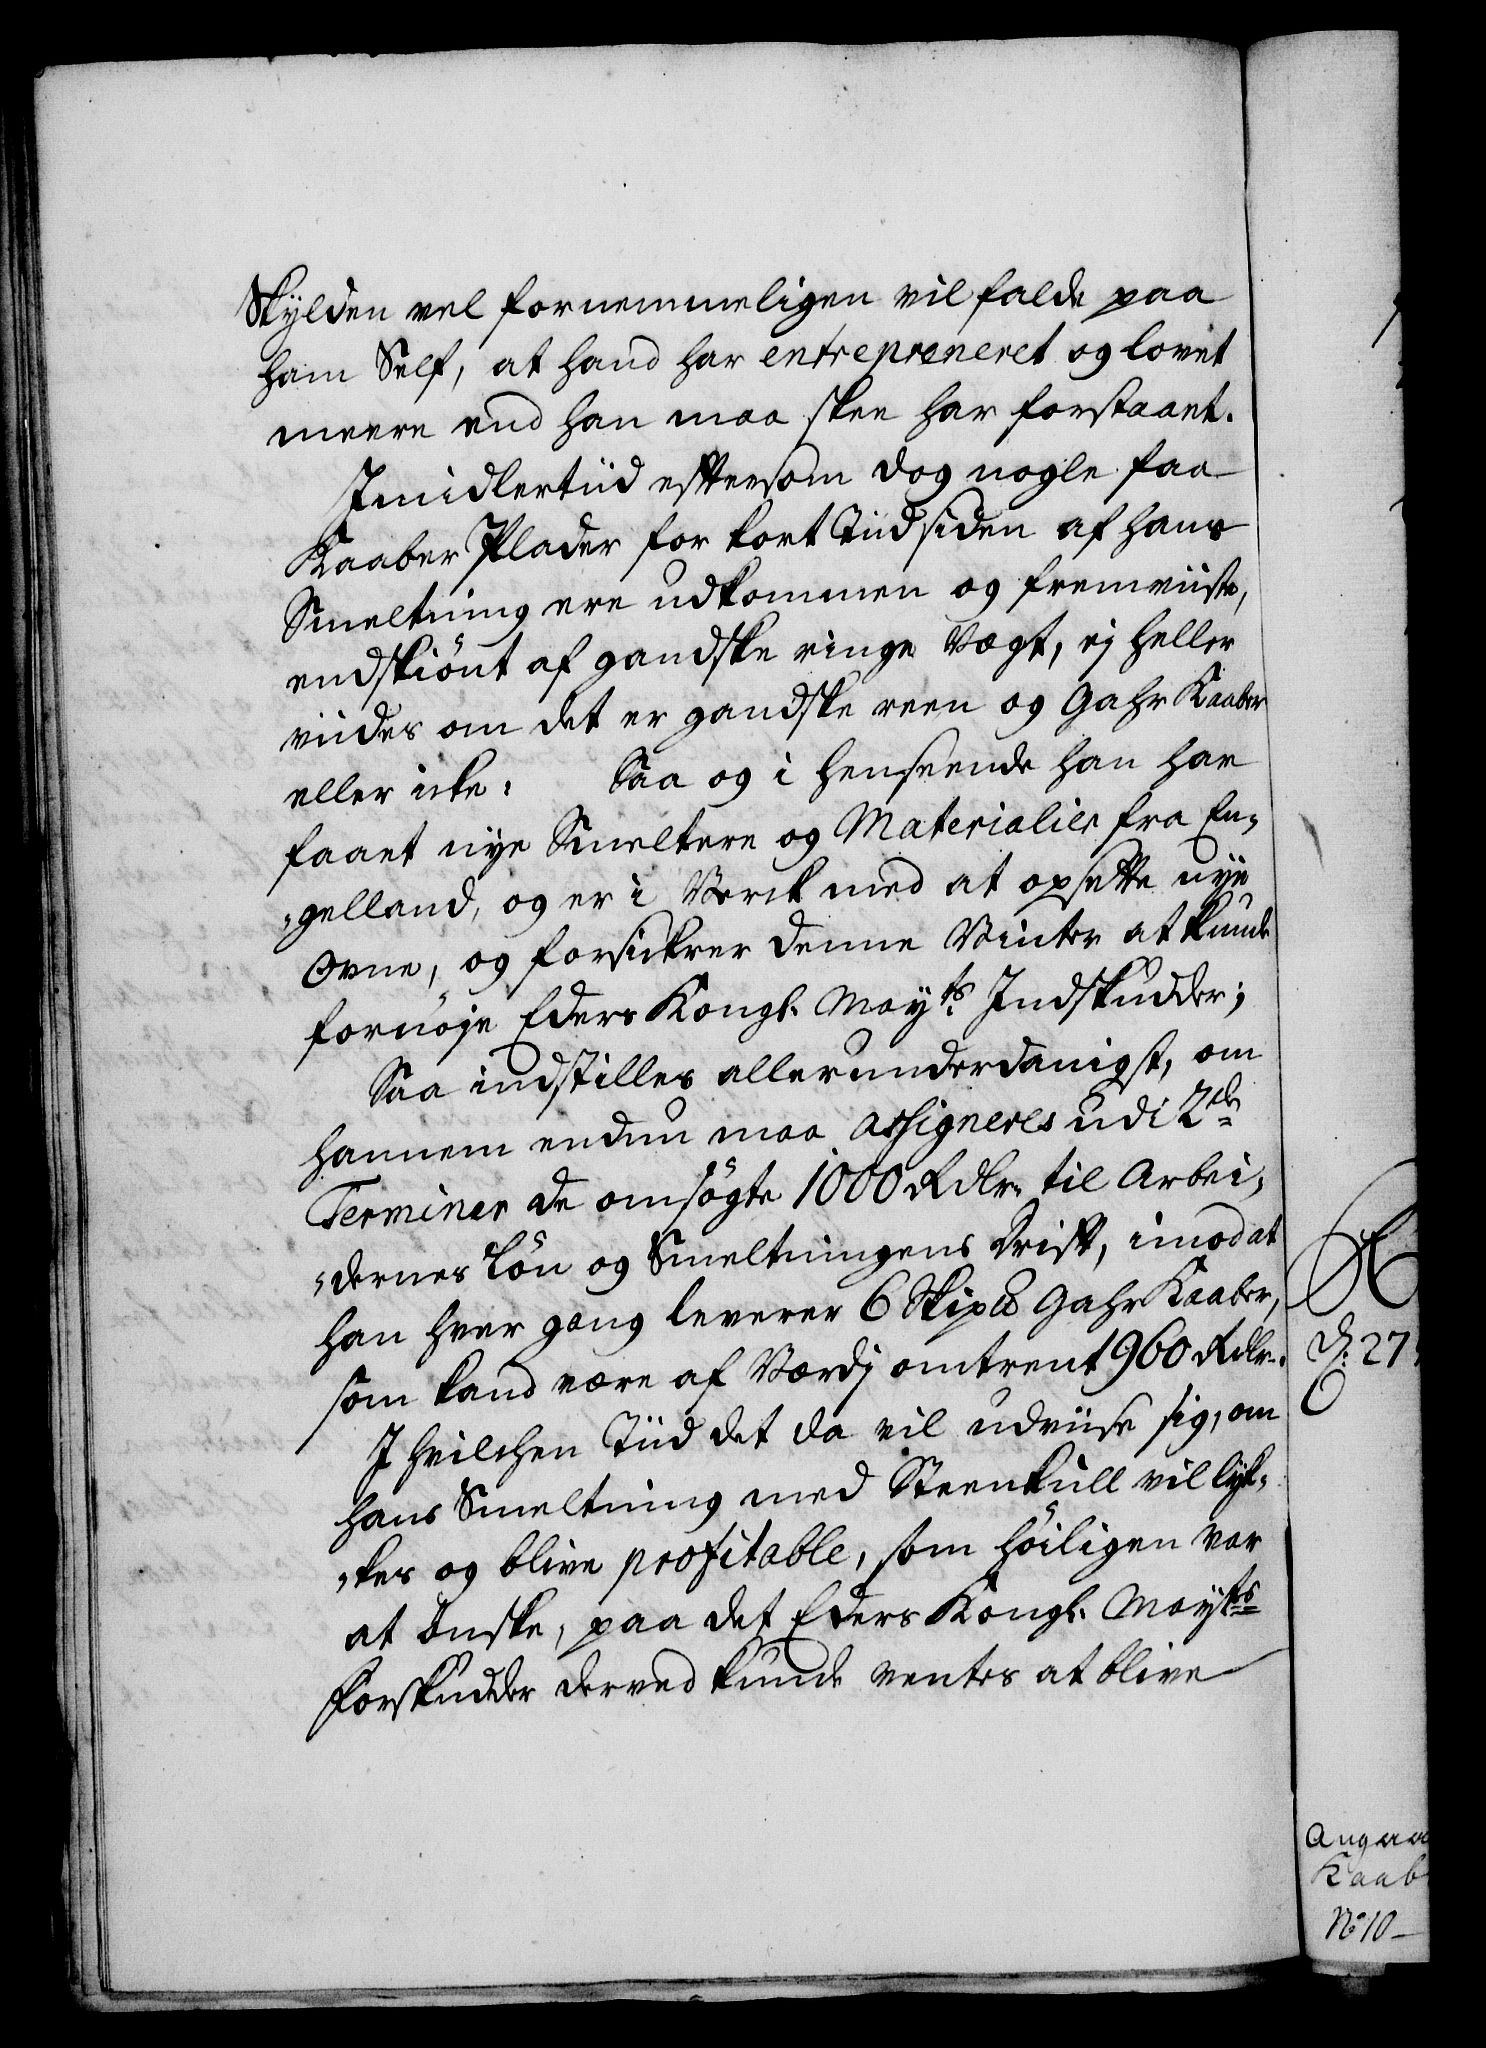 Skylden vel fornemmeligen vil falde paa
ham Self, at hand har entrepreneret og lovet
meere end han maa skee har forstaaet.
Imidlertiid eftersom dog nogle faa
Kaaber Plader for kort Tiid siden af hans
Smeltning ere udkommen og fremviiste,
endskiönt af gandske ringe Vægt, ej heller
viides om det er gandske reen og Gahr Kaaber
eller icke: Saa og i henseende han har
faaet nye Smeltere og Materialier fra En-
-gelland, og er i Verck med at opsætte nye
Ovne, og forsickrer denne Vinter at kunde
fornöje Eders Kongl. Mayts Indskudder;
Saa indstilles allerunderdanigst, om
hannem endnu maa assigneres udi 2de
Terminer de omsögte 1000 Rdlr. til Arbei-
-dernes Lön og Smeltningens Drift, imod at
han hver gang leverer 6 Skip℔ Gahr Kaaber,
som kand være af Værdj omtrent 960 Rdlr.
I hvilchen Tiid det da vil udviise sig, om
hans Smeltning med Steenkull vil lyk-
-kes og blive profitable, som höiligen var
at önske, paa det Eders Kongl. Mayts
Forskudder derved kunde ventes at blive
D. 27
Angaa
Kaab
No 10